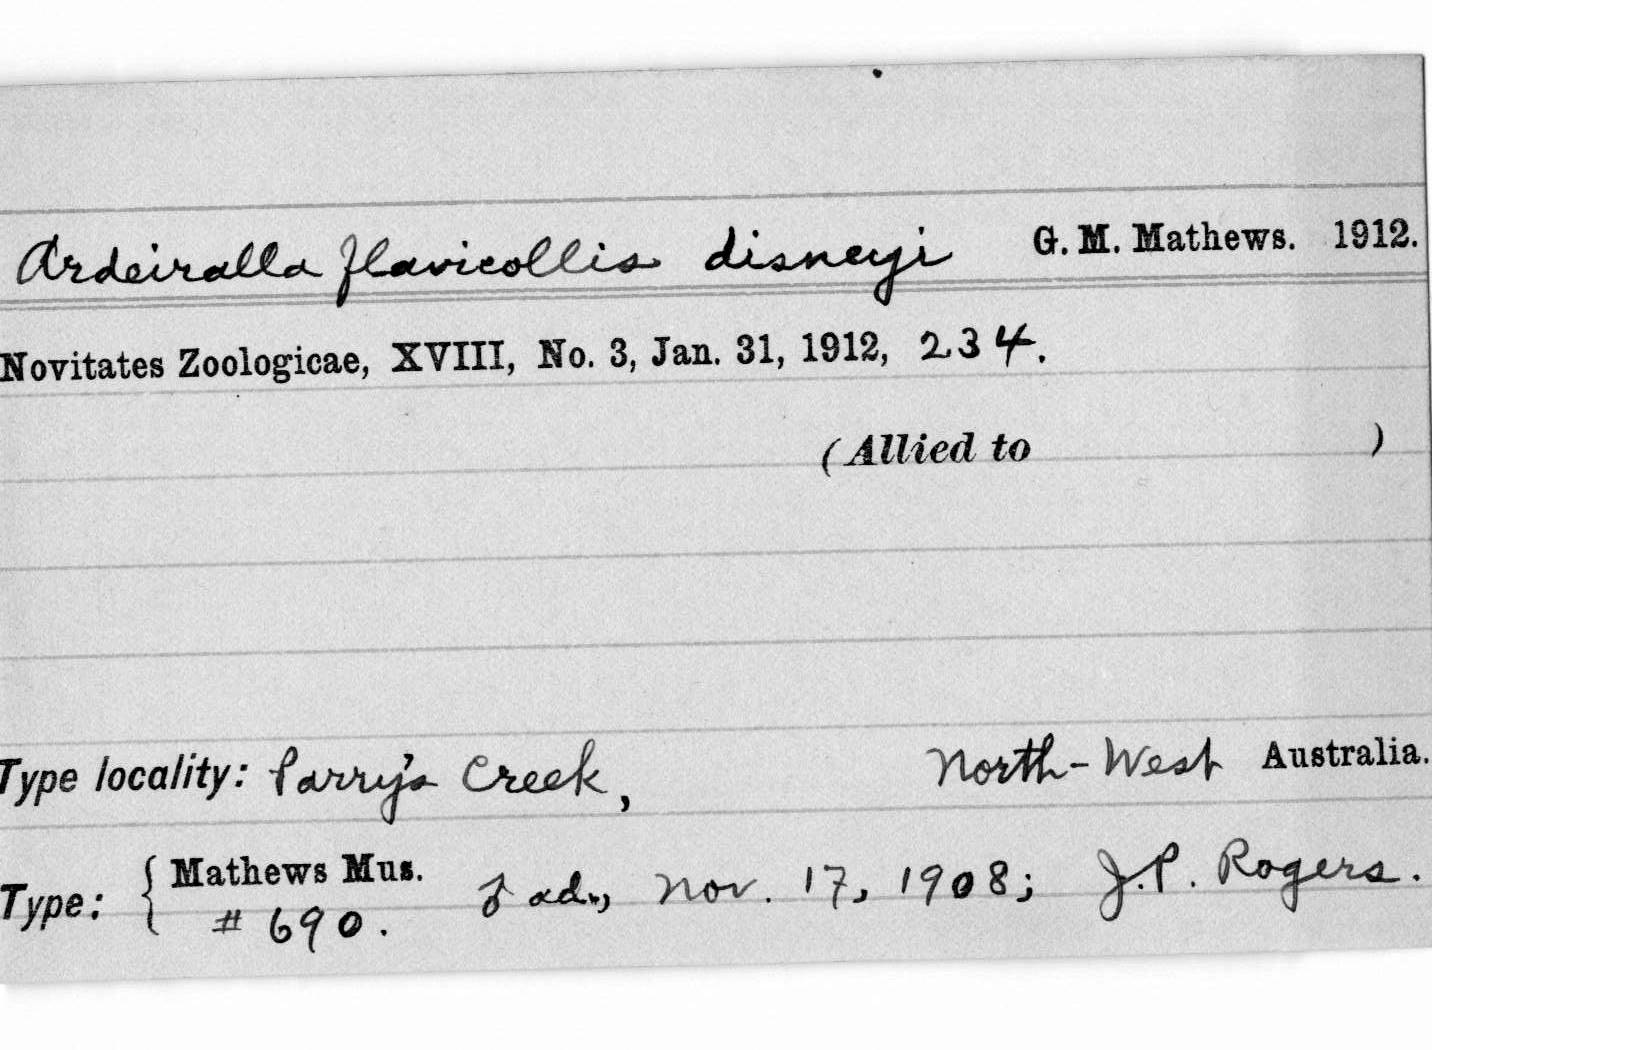 Ardeiralla flavicollis disneyi G. M. Mathews. 1912.
Novitates Zoologicae, XVIII, No. 3, Jan. 31, 1912, 234.
(Allied to )
Type locality: Parry's Creek, North-West Australia.
Type: { Mathews Mus. # 690. ♂ ad., Nov. 17, 1908; J.P. Rogers.